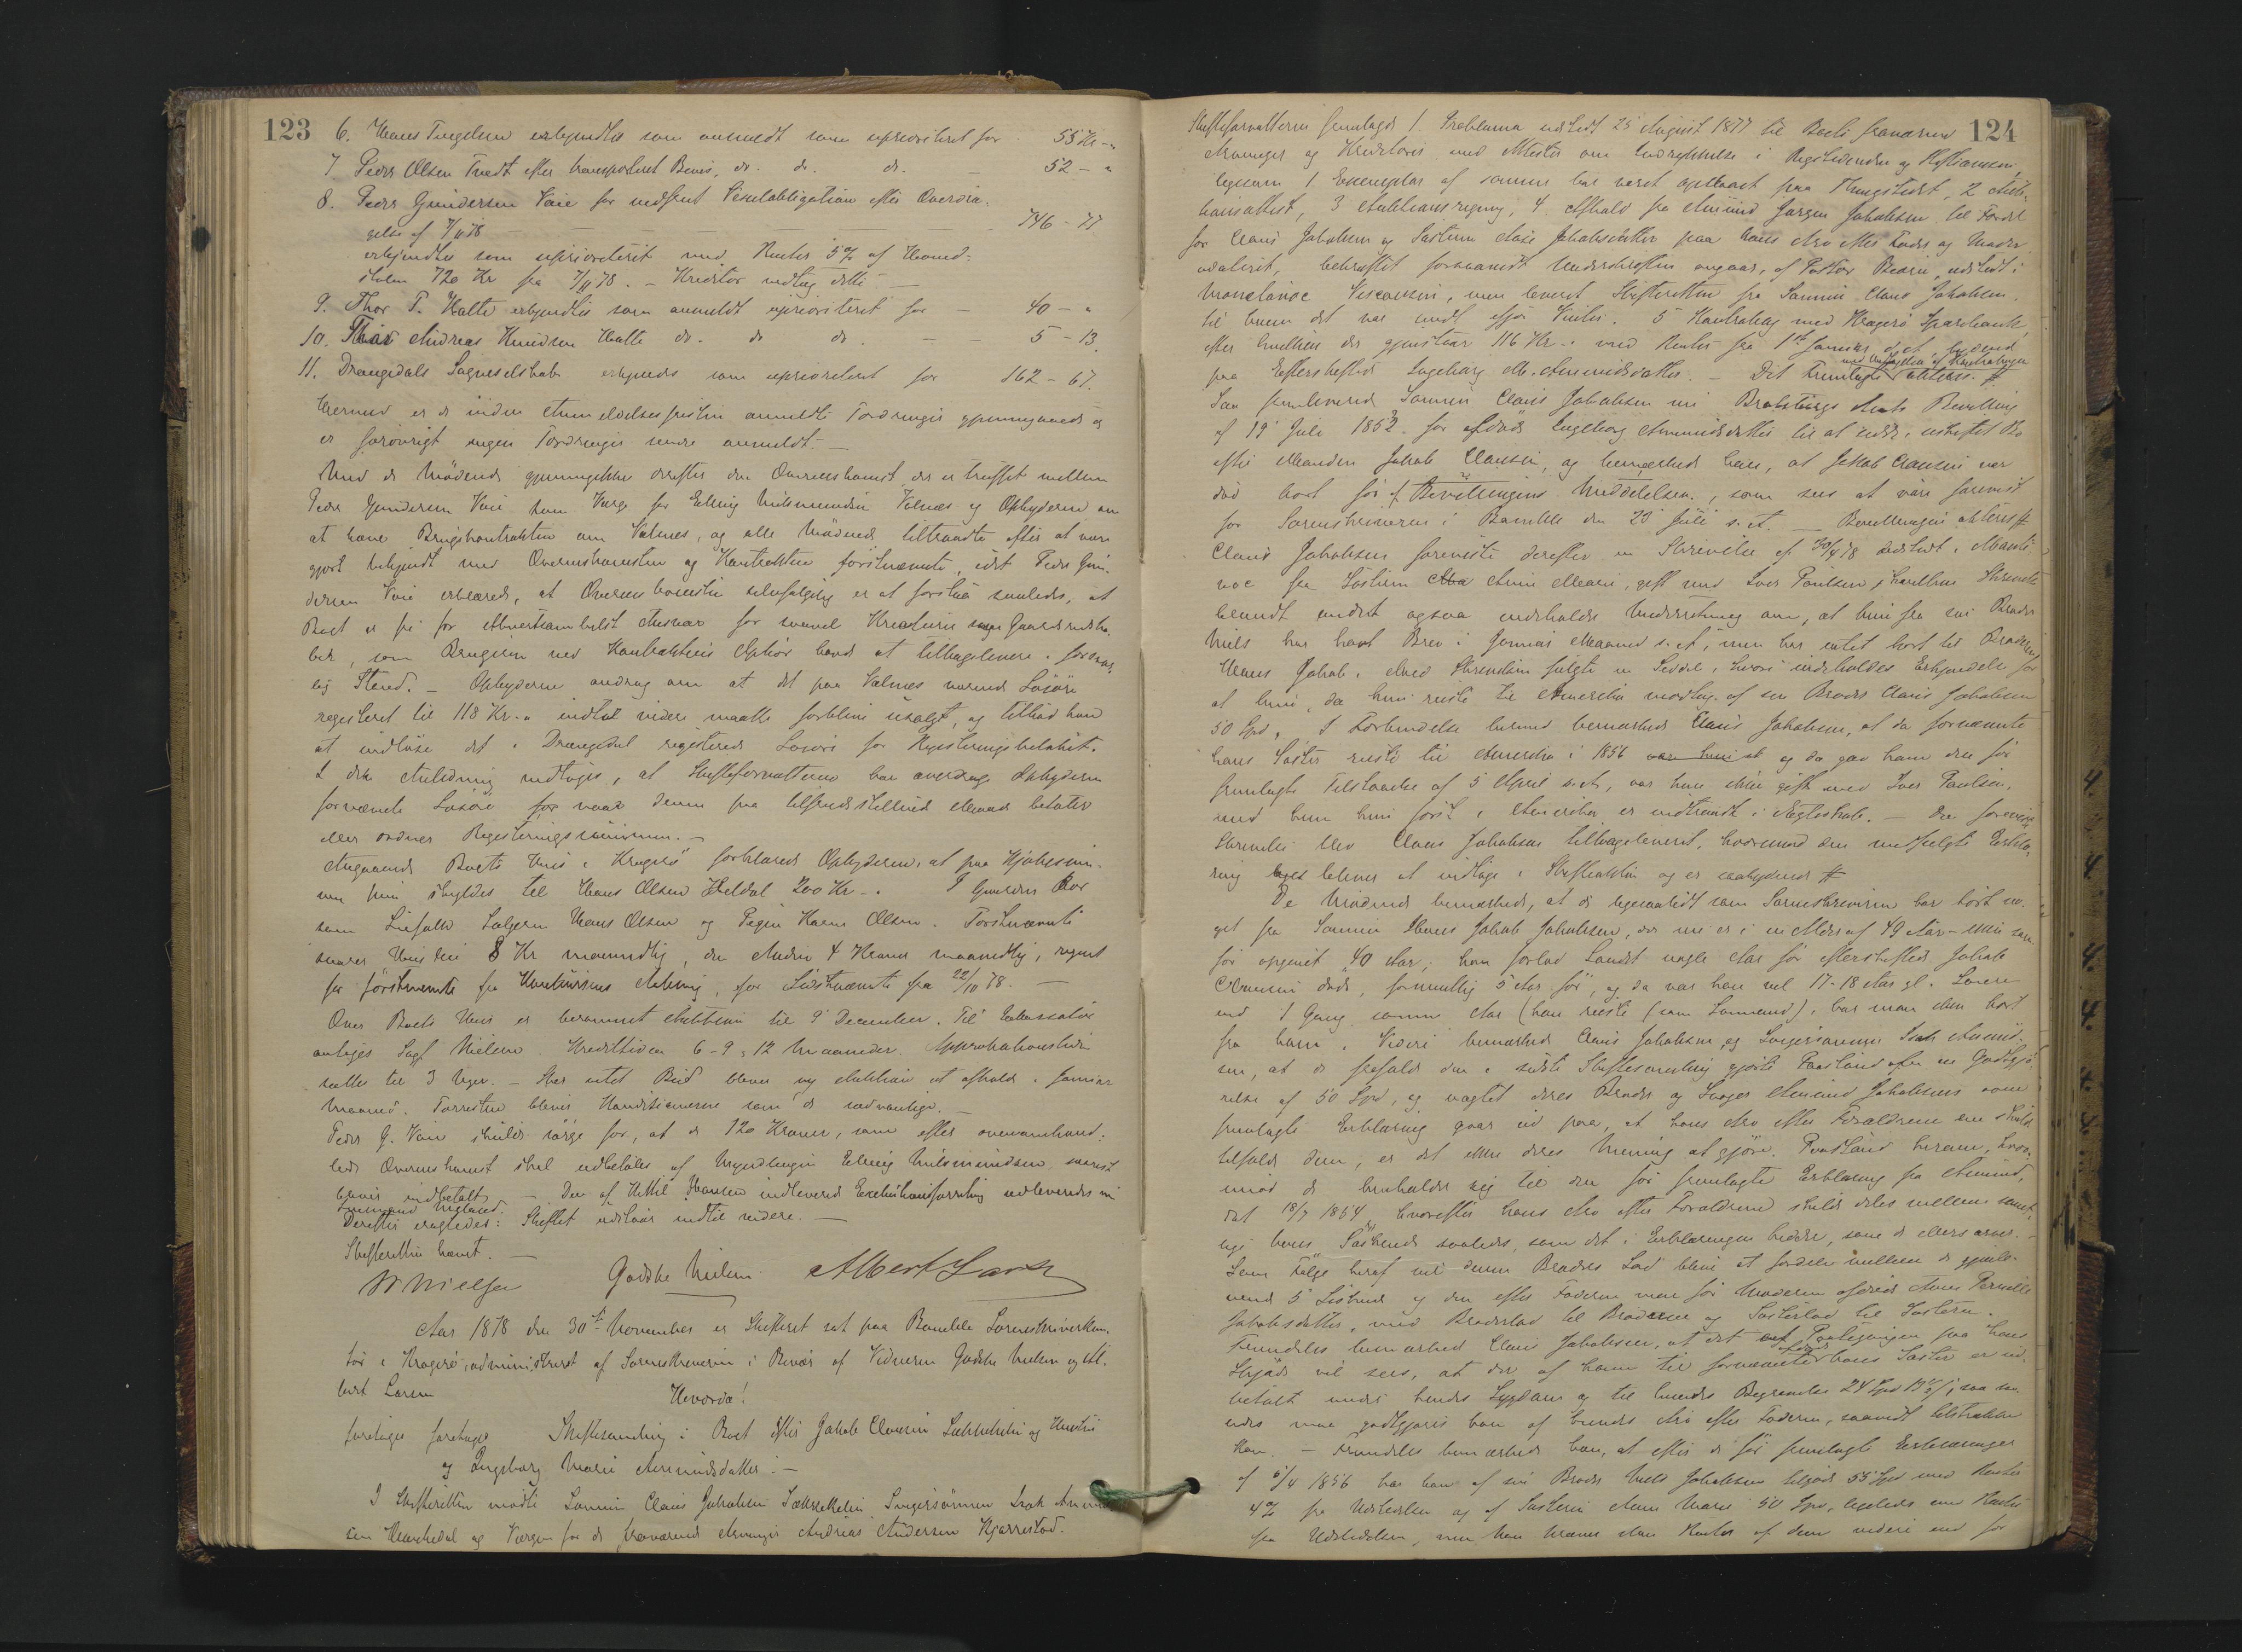 123
6. Hans Tingelsen erkjendtes som anmeldt som uprioriteret for 55 Kr - "
7. Peder Olsen Tvedt efter transporteret Bevis, do. do. do. - 52 - "
8. Peder Gundersen Vaie for indført Pantobligation efter Overdra-
gelse af 7/11 78 - 746 - 77.
erkjendtes som uprioriteret med Renter 5 % af Hoved-
stolen 720 Kr fra 7/11 78. - Kreditor vedtog dette. -
9. Thor T. Halte erkjendtes som anmeldt uprioriteret for - 40 - "
10. Andreas Knudsen Halte do. do do. - - 5 - 13.
11. Drangedals Sogneselskab erkjendes som uprioriteret for 162 - 67.
Hermed er de inden Anmeldelsesfristen anmeldte Fordringer gjennemgaaede og
er forøvrigt ingen Fordringer senere anmeldt. -
Med de Mødende gjennemgikkes derefter den Overenskomst der er truffet mellem
Peder Gundersen Vaie som Værge for Erling Nilsmundsen Valnæs og Opbyderen om
at hæve Brugskontrakten om Valnæs, og alle Mødende tiltraadte efter at være
gjort bekjendt med Overenskomsten og Kontrakten førstnævnte, idet Peder Gun-
dersen Vaie erklærede, at Overenskomsten selvfølgelig er at forstaa saaledes, at
Boet er fri for ethvertsomhelst Ansvar for saavel Kreaturer som Gaardsredska-
ber, som Brugeren ved Kontraktens Ophør havde at tilbagelevere i forsvar-
lig Stand. - Opbyderen androg om at det paa Valnæs værende Løsøre
registeret til 118 Kr. " indtil videre maatte forblive usolgt, og tilbød han
at indløse det i Drangedal registerede Løsøre for Registeringsbeløbet.
I den Anledning vedtoges, at Skifteforvalteren kan overdrage Opbyderen
fornævnte Løsøre naar denne paa tilfredsstillende Maade betaler
eller ordner Registeringssummen. -
Angaaende Boets Huus i Kragerø forklarede Opbyderen, at paa Kjøbesum-
men skyldes til Hans Olsen Heldal 200 Kr - . I Gaarden bor
som Leiefolk Sælgeren Hans Olsen og Pigen Karen Olsen. Førstnævnte
svarer Husleie 8 Kr maanedlig, den Anden 4 Kroner maanedlig, regnet
for førstnævnte fra Konkursens Aabning, for Sidstnævnte fra 22/10 78. -
Over Boets Huus er berammet Auktion til 9 December. Til Inkassator
antages Sagf Nielsen. Kredittiden 6 - 9 a 12 Maaneder. Approbationstiden
sættes til 3 Uger. - Sker intet Bud bliver ny Auktion at afholde i Januar
Maaned. Forresten bliver Konditionerne som de sædvanlige. -
Peder G. Vaie skulde sørge for, at de 120 Kroner, som efter ovenomhand-
lede Overenskomst skal udbetales af Myndlingen Erling Nilsmundsen snarest
bliver indbetalt. - Den af Kittil Hansen indleverede Exekutionsforretning udleveredes nu
Derefter eragtedes: Skiftet udstaar indtil videre. -
Skifteretten hævet. -
N Nielsen Godske Nielsen Albert Larsen
Aar 1878 den 30te November er Skifteret sat paa Bamble Sorenskriverkon-
tor i Kragerø, administreret af Sorenskriveren i Overvær af Vidnerne Godske Nielsen og Al-
bert Larsen
Hvorda!
foretages Skiftesamling i Boet efter Jakob Clausen og Hustru
og Ingeborg Marie Amundsdatter. -
I Skifteretten mødte Sønnen Claus Jakobsen Svigersønnen Isak Amund-
sen og Værgen for de fraværende Arvinger Andreas Andersen Kjærrestad.
124
Skifteforvalteren fremlagde 1. Proklama udstedt 25 August 1877 til Boets fraværende
Arvinger og Kreditorer med Attester om Indrykkelse i Rigstidende og Stiftsavisen,
ligesom 1 Exemplar af samme har været opslaaet paa Thingstedet, 2 Auk-
tionsattest, 3 Auktionsregning, 4. Afkald fra Amund Jørgen Jakobsen til Fordel
for Claus Jakobsen og Søsteren Jakobsdatter paa hans Arv efter Fader og Moder
udateret, bekræftet forsaavidt Underskriften angaar, af Pastor udstedt i
Wisconsin, men leveret Skifteretten fra Sønnen Claus Jakobsen.
til hvem det var sendt ifjor Vinter. 5 Kontrabog med Kragerø Sparebank,
efter hvilken der gjenstaar 116 Kr. " med Renter fra 1ste Januar d. A. lydende
paa Efterskiftede Ingeborg M. Amundsdatter. - Det Fremlagte med Undtagelse af Kontrabogen akteres #
Saa fremlevered Sønnen Claus Jakobsen en Bratsbergs Amts Bevilling
af 19 Juli 1852 for afdøde Ingeborg Amundsdatter til at sidde i uskiftet Bo
efter Manden Jakob Clausen, og bemærkede han, at Jakob Clausen var
død kort før Bevillingens Meddelelse, som sees at være forevist
for Sorenskriveren i Bamble den 23 Juli s. A. - Bevillingen akteres #
Claus Jakobsen foreviste derefter en Skrivelse af 30/4 78 dateret i
fra Søsteren Anne Marie, gift med Iver Poulsen, hvilken Skrivelse
blandt andet ogsaa indeholder Underretning om, at hun fra sin Broder
Niels har havt Brev i Januar Maaned s. A., men har intet hørt til Broderen
Hans Jakob. Med Skrivelsen fulgte en Seddel, hvori indeholdes Erkjendelse for
at hun, da hun reiste til Amerika modtog af sin Broder Claus Jakobsen
50 Spd. I Forbindelse hermed bemærkede Claus Jakobsen, at da fornævnte
hans Søster reiste til Amerika i 1856 og da gav ham den før
fremlagte Tilstaaelse af 5 April s. A., var hun ikke gift med Iver Poulsen,
med hvem hun først i Amerika er indtraadt i Ægteskab. - Den foreviste
Skrivelse blev Claus Jakobsen tilbageleveret, hvorimod den medfulgte Erklæ-
ring bliver at indtage i Skifteakten og er saalydende #
De Mødende bemærkede, at de ligesaalidt som Sorenskriveren har hørt no-
get fra Sønnen Hans Jakob Jakobsen, der nu er i en Alder af 49 Aar - ikke som
før opgivet 40 Aar; han forlod Landet nogle Aar før efterskiftede Jakob
Clausens Død, formentlig 5 Aar før, og da var han vel 17-18 Aar gl. Senere
end 1 Gang samme Aar (han reiste som Sømand), har man ikke hørt
fra ham. Videre bemærkede Claus Jakobsen og Svigersønnen Isak Amund-
sen, at de frafalde den i sidste Skiftesamling gjorte Paastand om en Godtgjø-
relse af 50 Spd, og uagtet deres Broder og Svoger Amund Jakobsens oven
fremlagte Erklæring gaar ud paa, at hans Arv efter Forældrene skulde
tilfalde dem, er det ikke deres Mening at gjøre Paastand herom, hvor-
imod de henholder sig til den før fremlagte Erklæring fra Amund,
dat 18/7 1854, hvorefter hans Arv efter Forældrene skulde deles mellem samt-
lige hans Søskende saaledes, som det i Erklæringen hedder, som de ellers arver. -
Som Følge heraf vil denne Broders Lod blive at fordele mellem de gjenle-
vende 5 Søskende og den efter Faderen men før Moderen afdøde Anne Pernille
Jakobsdatter, med Broderlod til Brødrene og Søsterlod til Søstrene.
Fremdeles bemærkede Claus Jakobsen, at det af Paategningen paa hans
Skjøde vil sees, at der af ham til fornævnte afdøde hans Søster er ud-
betalt under hendes Sygdom og til hendes Begravelse 24 Spd saa-
ledes maa godtgjøres ham af hendes Arv efter Faderen, saavidt tilstrække
kan. - Fremdeles bemærkede han, at efter de før fremlagte Erklæringer
af 5/4 1856 har han af sin Broder Niels Jakobsen tilgode 55 Spd med Renter
4 % fra Udstedelsen og af Søsteren Anne Marie 50 Spd, ligeledes med Renter
fra Udstedelsen, men han kræver ikke Renter af dem videre end for